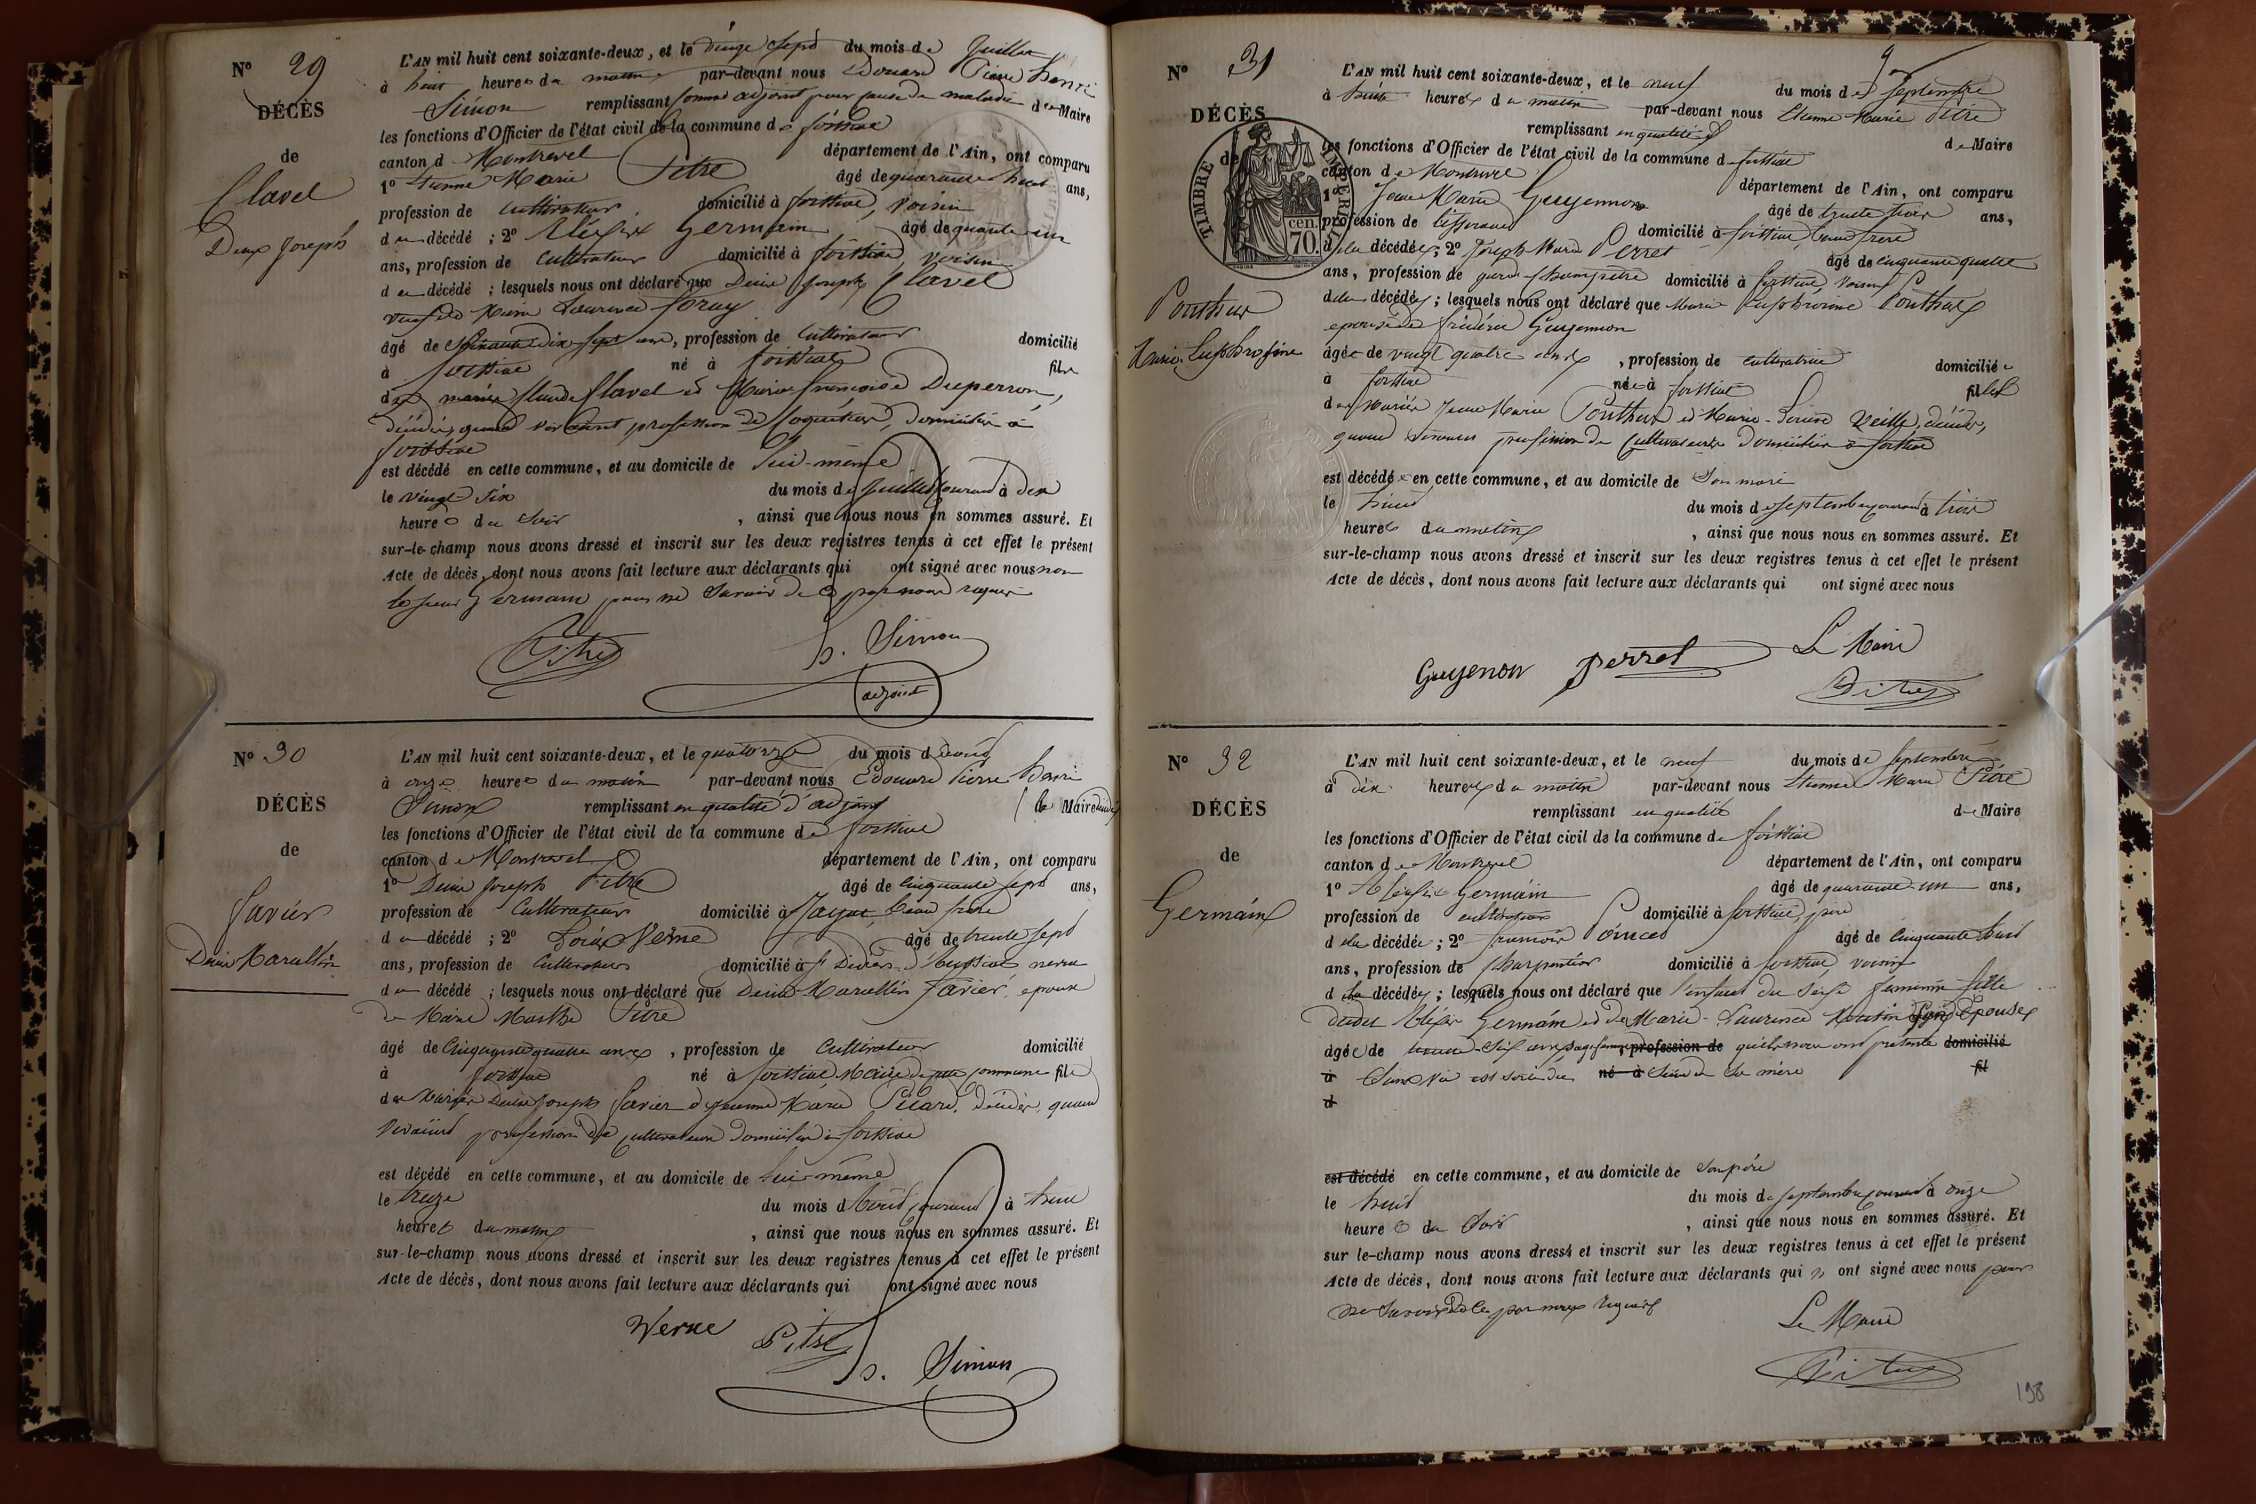 N° 29
DÉCÈS
de
Clavel
Denis Joseph
L'AN mil huit cent soixante-deux, et le vingt sept du mois de Juillet
à huit heures du matin par-devant nous Edouard Pierre henri
Simon remplissant comme adjoint pour cause de maladie de Maire
les fonctions d'Officier de l'état civil de la commune de foissiat
canton de Montrevel département de l'Ain, ont comparu
1° Etienne Marie Pitre âgé de quarante huit ans,
profession de cultivateur domicilié à foissiat, voisin
du décédé ; 2° Alexix Germain âgé de quarante un
ans, profession de cultivateur domicilié à foissiat, voisin
du décédé ; lesquels nous ont déclaré que Denis Joseph Clavel
veuf de Marie Laurence foray
âgé de dix sept ans, profession de cultivateur domicilié
à foissiat né à foissiat fils
des mariés Claude Clavel et Marie françoise Duperron,
décédés, quand vivaient profession de domiciliés à
foissiat
est décédé en cette commune, et au domicile de lui-même
le vingt six du mois de Juillet courant à dix
heures du soir , ainsi que nous nous en sommes assuré. Et
sur-le-champ nous avons dressé et inscrit sur les deux registres tenus à cet effet le présent
Acte de décès, dont nous avons fait lecture aux déclarants qui ont signé avec nous non
le sieur Germain pour ne savoir de ce par nous requis
Pitre
h. Simon
adjoint
N° 30
DÉCÈS
de
favier
Denis Marcellin
L'AN mil huit cent soixante-deux, et le quatorze du mois d'août
à onze heures du matin par-devant nous Edouard Pierre henri
Simon remplissant en qualité d'adjoint le Maire
les fonctions d'Officier de l'état civil de la commune de foissiat
canton de Montrevel département de l'Ain, ont comparu
1° Denis Joseph Pitre âgé de cinquante sept ans,
profession de cultivateur domicilié à Jayat, beau frère
du décédé ; 2° Verne âgé de trente sept
ans, profession de cultivateur domicilié à St Didier d'Aussiat, neveu
du décédé ; lesquels nous ont déclaré que Denis Marcellin favier, époux
de Marie Marthe Pitre
âgé de cinquante quatre ans , profession de cultivateur domicilié
à foissiat né à foissiat Maire de cette commune fils
des Mariés Denis Joseph favier et Jeanne Marie Picard, décédés, quand
vivaient profession de cultivateurs domiciliés à foissiat
est décédé en cette commune, et au domicile de lui-même
le treize du mois d'août courant à huit
heures du matin , ainsi que nous nous en sommes assuré. Et
sur-le-champ nous avons dressé et inscrit sur les deux registres tenus à cet effet le présent
Acte de décès, dont nous avons fait lecture aux déclarants qui ont signé avec nous
Verne
Pitre
h. Simon
N° 31
DÉCÈS
de
TIMBRE IMPÉRIAL
70 cen.
Ponthus
Marie Euphrosine
L'AN mil huit cent soixante-deux, et le neuf du mois de septembre
à huit heures du matin par-devant nous Etienne Marie Pitre
remplissant en qualité de Maire
les fonctions d'Officier de l'état civil de la commune de foissiat
canton de Montrevel département de l'Ain, ont comparu
1° Jean Marie Guyennon âgé de trente trois ans,
profession de tisserand domicilié à foissiat, beau frère
de la décédée ; 2° Joseph Marie Perret âgé de cinquante quatre
ans, profession de garde champêtre domicilié à foissiat, voisin
de la décédée ; lesquels nous ont déclaré que Marie Euphrosine Ponthus
épouse de frédéric Guyennon
âgée de vingt quatre ans , profession de cultivatrice domiciliée
à foissiat née à foissiat fille
des Mariés Jean Marie Ponthus et Marie-Louise Veille, décédés,
quand vivaient profession de cultivateurs domiciliés à foissiat
est décédée en cette commune, et au domicile de son mari
le huit du mois de septembre courant à trois
heures du matin , ainsi que nous nous en sommes assuré. Et
sur-le-champ nous avons dressé et inscrit sur les deux registres tenus à cet effet le présent
Acte de décès, dont nous avons fait lecture aux déclarants qui ont signé avec nous
Guyenon
Perret
Le Maire
Pitre
N° 32
DÉCÈS
de
Germain
L'AN mil huit cent soixante-deux, et le neuf du mois de septembre
à dix heures du matin par-devant nous Etienne Marie Pitre
remplissant en qualité de Maire
les fonctions d'Officier de l'état civil de la commune de foissiat
canton de Montrevel département de l'Ain, ont comparu
1° Alexix Germain âgé de quarante un ans,
profession de cultivateur domicilié à foissiat, père
de la décédée ; 2° françois âgé de cinquante huit
ans, profession de charpentier domicilié à foissiat, voisin
de la décédée ; lesquels nous ont déclaré que l'enfant du sexe féminin fille
dudit Alexix Germain et de Marie-Laurence son épouse
âgée de trente six ans , profession de qu'ils nous ont présenté domicilié
à sans vie est né à sein de sa mère fil
d
est décédé en cette commune, et au domicile de son père
le huit du mois de septembre courant à onze
heures du soir , ainsi que nous nous en sommes assuré. Et
sur le-champ nous avons dressé et inscrit sur les deux registres tenus à cet effet le présent
Acte de décès, dont nous avons fait lecture aux déclarants qui n'ont signé avec nous pour
ne savoir de ce par nous requis
Le Maire
Pitre
198